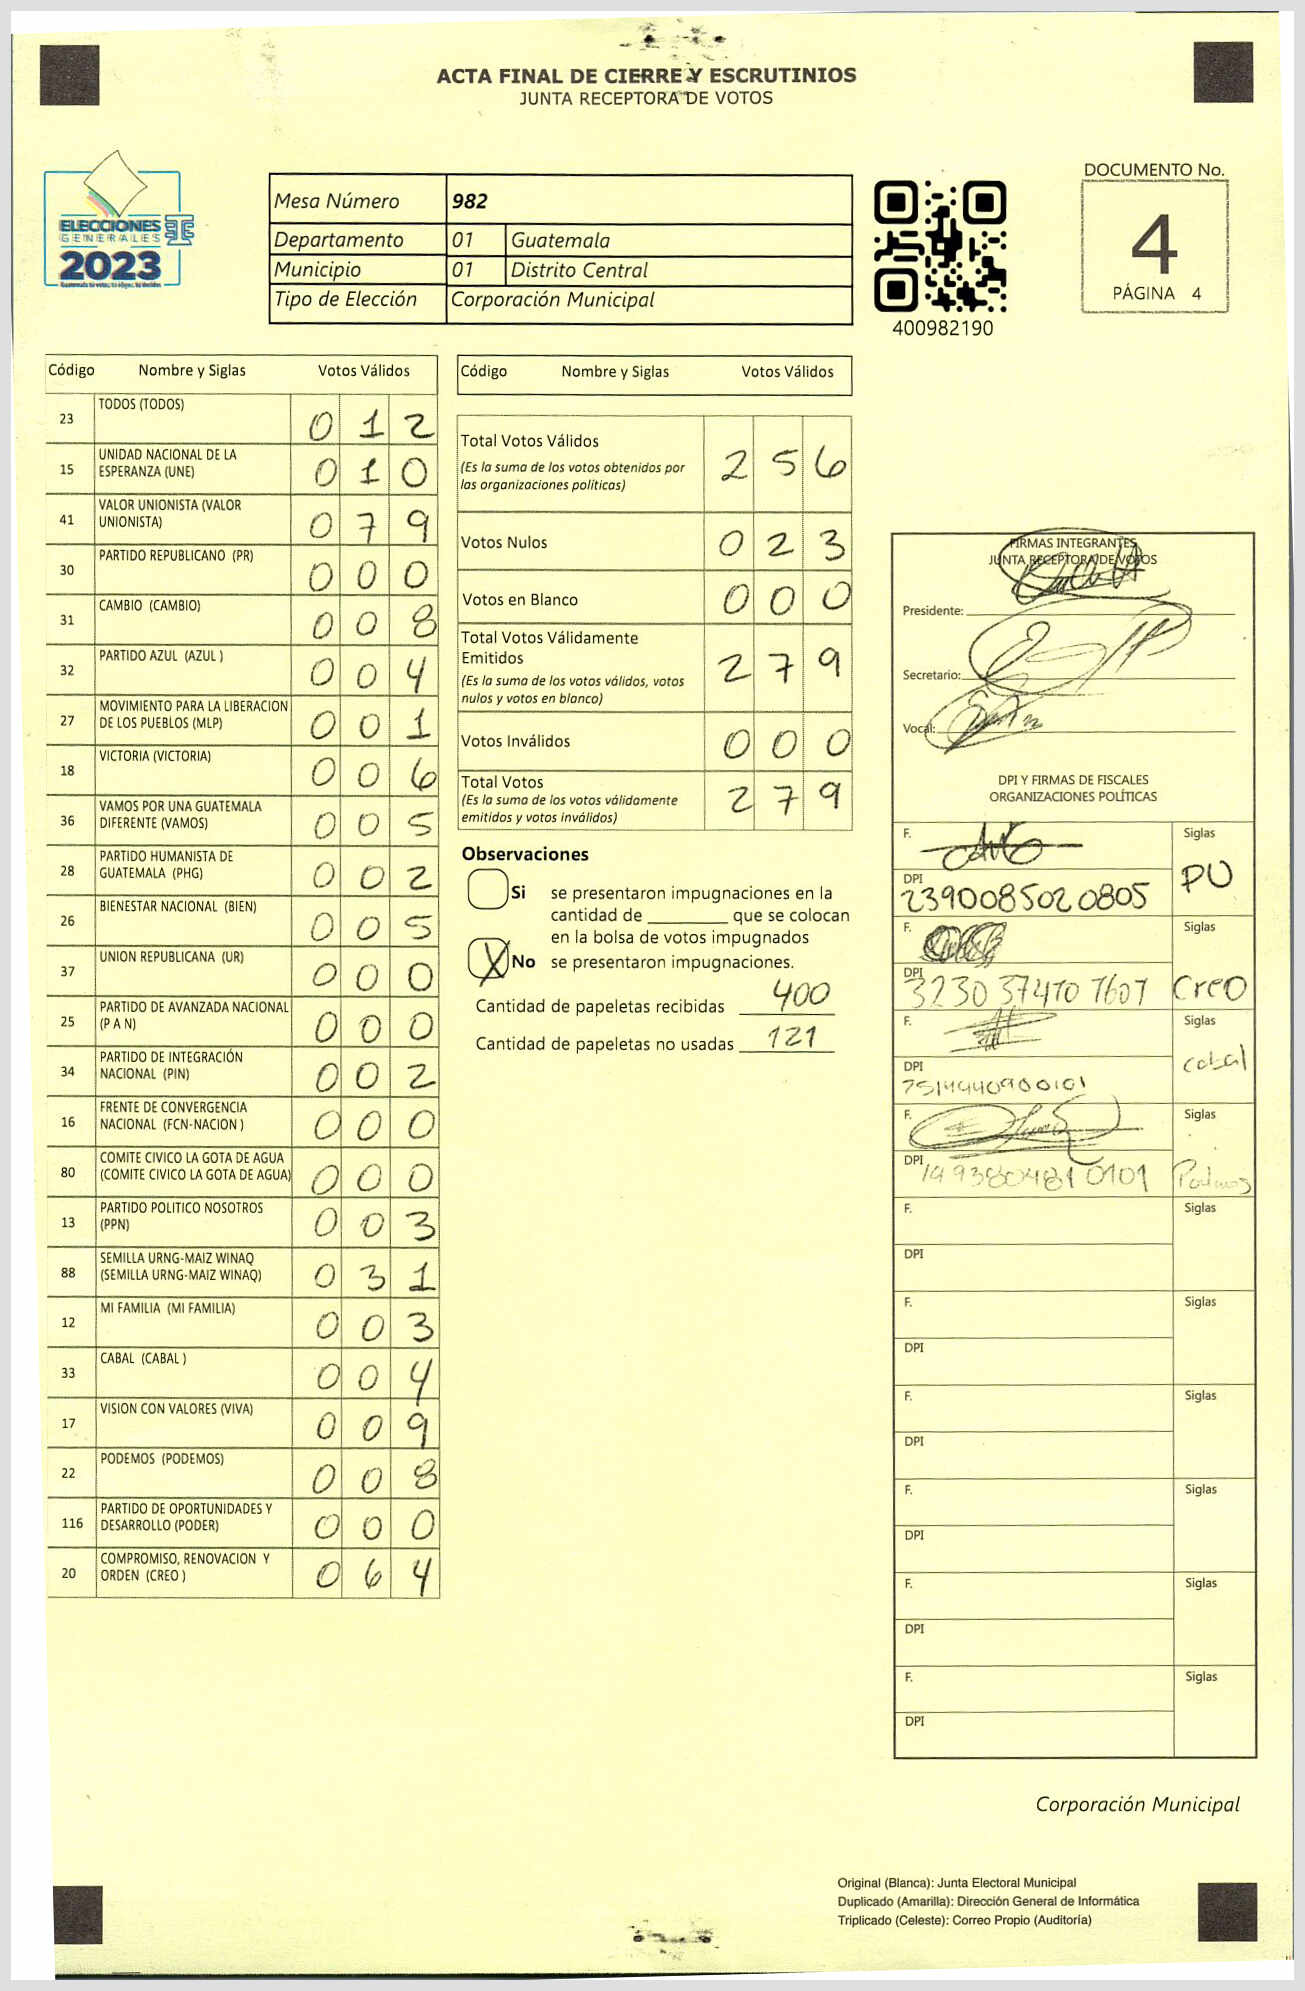 ACTA FINAL DE CIERRE Y ESCRUTINIOS
JUNTA RECEPTORA DE VOTOS
ELECCIONES
GENERALES
2023
Guatemala tu votas, tu eliges, tu decides
Mesa Número 982
Departamento 01 Guatemala
Municipio 01 Distrito Central
Tipo de Elección Corporación Municipal
400982190
DOCUMENTO No.
4
PÁGINA 4
Código Nombre y Siglas Votos Válidos
23 TODOS (TODOS) 0 1 2
15 UNIDAD NACIONAL DE LA
ESPERANZA (UNE) 0 1 0
41 VALOR UNIONISTA (VALOR
UNIONISTA) 0 7 9
30 PARTIDO REPUBLICANO (PR) 0 0 0
31 CAMBIO (CAMBIO) 0 0 8
32 PARTIDO AZUL (AZUL ) 0 0 4
27 MOVIMIENTO PARA LA LIBERACION
DE LOS PUEBLOS (MLP) 0 0 1
18 VICTORIA (VICTORIA) 0 0 6
36 VAMOS POR UNA GUATEMALA
DIFERENTE (VAMOS) 0 0 5
28 PARTIDO HUMANISTA DE
GUATEMALA (PHG) 0 0 2
26 BIENESTAR NACIONAL (BIEN) 0 0 5
37 UNION REPUBLICANA (UR) 0 0 0
25 PARTIDO DE AVANZADA NACIONAL
(P A N) 0 0 0
34 PARTIDO DE INTEGRACIÓN
NACIONAL (PIN) 0 0 2
16 FRENTE DE CONVERGENCIA
NACIONAL (FCN-NACION ) 0 0 0
80 COMITE CIVICO LA GOTA DE AGUA
(COMITE CIVICO LA GOTA DE AGUA) 0 0 0
13 PARTIDO POLITICO NOSOTROS
(PPN) 0 0 3
88 SEMILLA URNG-MAIZ WINAQ
(SEMILLA URNG-MAIZ WINAQ) 0 3 1
12 MI FAMILIA (MI FAMILIA) 0 0 3
33 CABAL (CABAL ) 0 0 4
17 VISION CON VALORES (VIVA) 0 0 9
22 PODEMOS (PODEMOS) 0 0 8
116 PARTIDO DE OPORTUNIDADES Y
DESARROLLO (PODER) 0 0 0
20 COMPROMISO, RENOVACION Y
ORDEN (CREO ) 0 6 4
Código Nombre y Siglas Votos Válidos
Total Votos Válidos 2 5 6
(Es la suma de los votos obtenidos por
las organizaciones políticas)
Votos Nulos 0 2 3
Votos en Blanco 0 0 0
Total Votos Válidamente
Emitidos 2 7 9
(Es la suma de los votos válidos, votos
nulos y votos en blanco)
Votos Inválidos 0 0 0
Total Votos 2 7 9
(Es la suma de los votos válidamente
emitidos y votos inválidos)
Observaciones
Si se presentaron impugnaciones en la
cantidad de ________ que se colocan
en la bolsa de votos impugnados
X No se presentaron impugnaciones.
Cantidad de papeletas recibidas 400
Cantidad de papeletas no usadas 121
FIRMAS INTEGRANTES
JUNTA RECEPTORA DE VOTOS
Presidente:
Secretario:
Vocal:
DPI Y FIRMAS DE FISCALES
ORGANIZACIONES POLÍTICAS
F. Siglas
PU
DPI
2390085020805
F. Siglas
DPI
3230374707607 Creo
F. Siglas
cabal
DPI
7514440900101
F. Siglas
DPI
1493804810101 Podemos
F. Siglas
DPI
F. Siglas
DPI
F. Siglas
DPI
F. Siglas
DPI
F. Siglas
DPI
F. Siglas
DPI
Corporación Municipal
Original (Blanca): Junta Electoral Municipal
Duplicado (Amarilla): Dirección General de Informática
Triplicado (Celeste): Correo Propio (Auditoría)